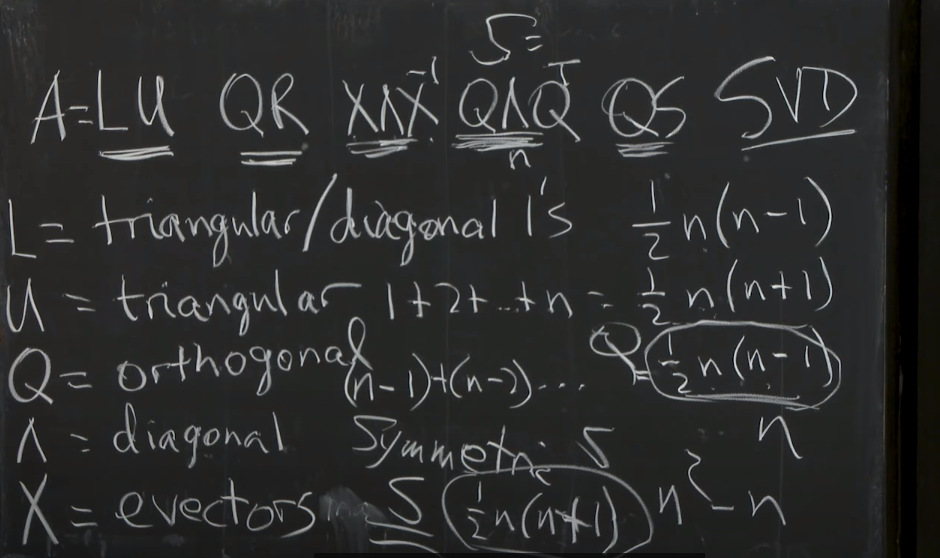 S=
A=LU QR XΛX⁻¹ QΛQᵀ QS SVD
n
L = triangular/diagonal 1's ½ n(n-1)
U = triangular 1+2+...+n = ½ n(n+1)
Q = orthogonal (n-1)+(n-2)... Q= ½ n(n-1)
Λ = diagonal Symmetric S n
X = evectors S ½n(n+1) n²-n